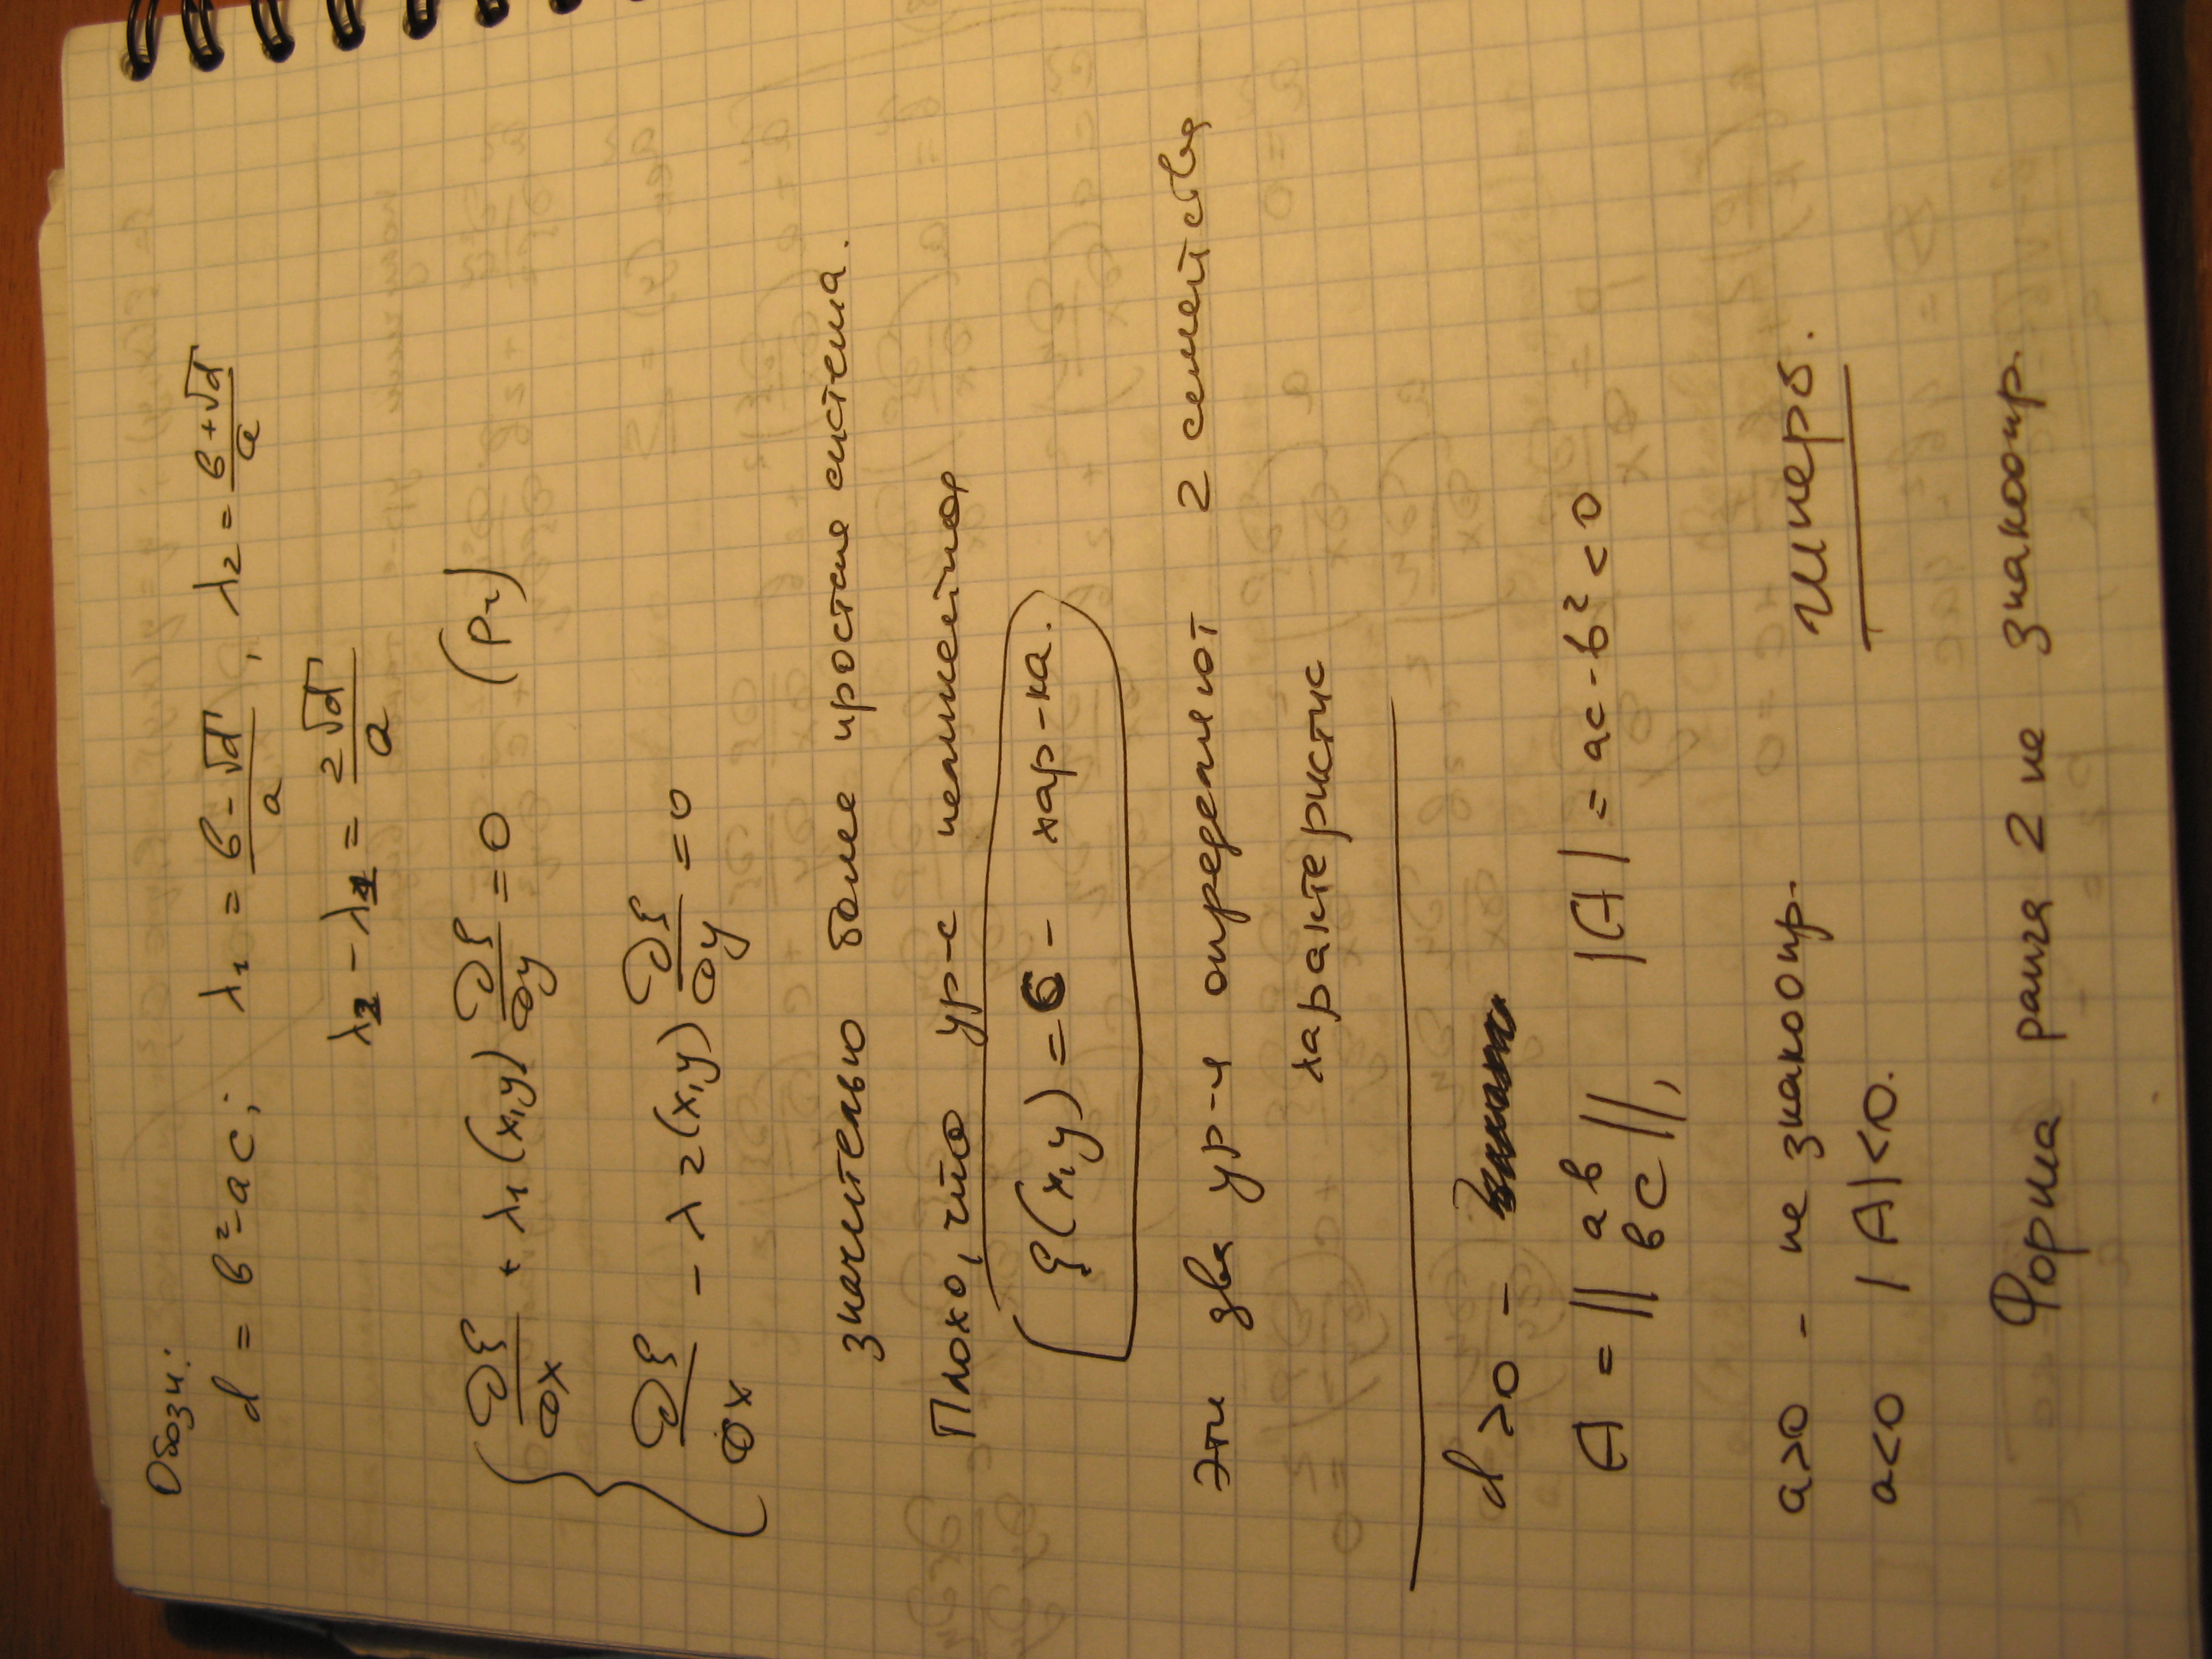 Обозн:
d = b²-ac; λ₁ = (b-√d)/a, λ₂ = (b+√d)/a
λ₂ - λ₁ = 2√d/a
{ ∂ξ/∂x + λ₁(x,y) ∂ξ/∂y = 0 (P₂)
∂ξ/∂x - λ₂(x,y) ∂ξ/∂y = 0
значительно более простые система.
Плохо, что ур-е нелинейное
ξ(x,y) = C - хар-ка.
Эти два ур-я определяют 2 семейства
характеристик
d>0 -
A = || a b
b c ||, |A| = ac - b² < 0
a>0 - не знакоопр. гиперб.
a<0 |A|<0.
Форма ранга 2 не знакоопр.